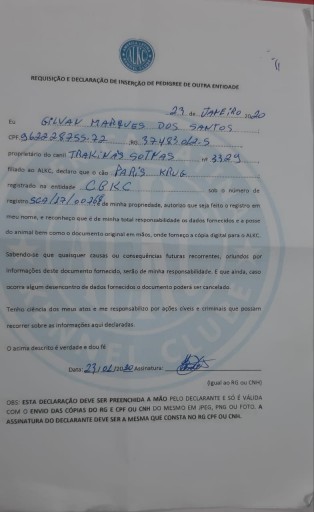 ALKC
REQUISIÇÃO E DECLARAÇÃO DE INSERÇÃO DE PEDIGREE DE OUTRA ENTIDADE
23 de JANEIRO 2020
Eu GILVAN MARQUES DOS SANTOS,
CPF 962228755-72 RG 37483062-5
proprietário do canil TRAKINAS SOTNAS nº 3329
filiado ao ALKC, declaro que o cão PARIS KRUG
registrado na entidade CBKC sob o número de
registro de minha propriedade, autorizo que seja feito o registro em
meu nome, e reconheço que é de minha total responsabilidade os dados fornecidos e a posse
do animal bem como o documento original em mãos, onde forneço a cópia digital para o ALKC.
Sabendo-se que quaisquer causas ou consequências futuras recorrentes, oriundos por
informações deste documento fornecido, serão de minha responsabilidade. E que ainda, caso
ocorra algum desencontro de dados fornecidos o documento poderá ser cancelado.
Tenho ciência dos meus atos e me responsabilizo por ações cíveis e criminais que possam
recorrer sobre as informações aqui declaradas.
O acima descrito é verdade e dou fé
Data: 23/01/2020 Assinatura:
(Igual ao RG ou CNH)
OBS: ESTA DECLARAÇÃO DEVE SER PREENCHIDA A MÃO PELO DECLARANTE E SÓ É VÁLIDA
COM O ENVIO DAS CÓPIAS DO RG E CPF OU CNH DO MESMO EM JPEG, PNG OU FOTO. A
ASSINATURA DO DECLARANTE DEVE SER A MESMA QUE CONSTA NO RG CPF OU CNH.